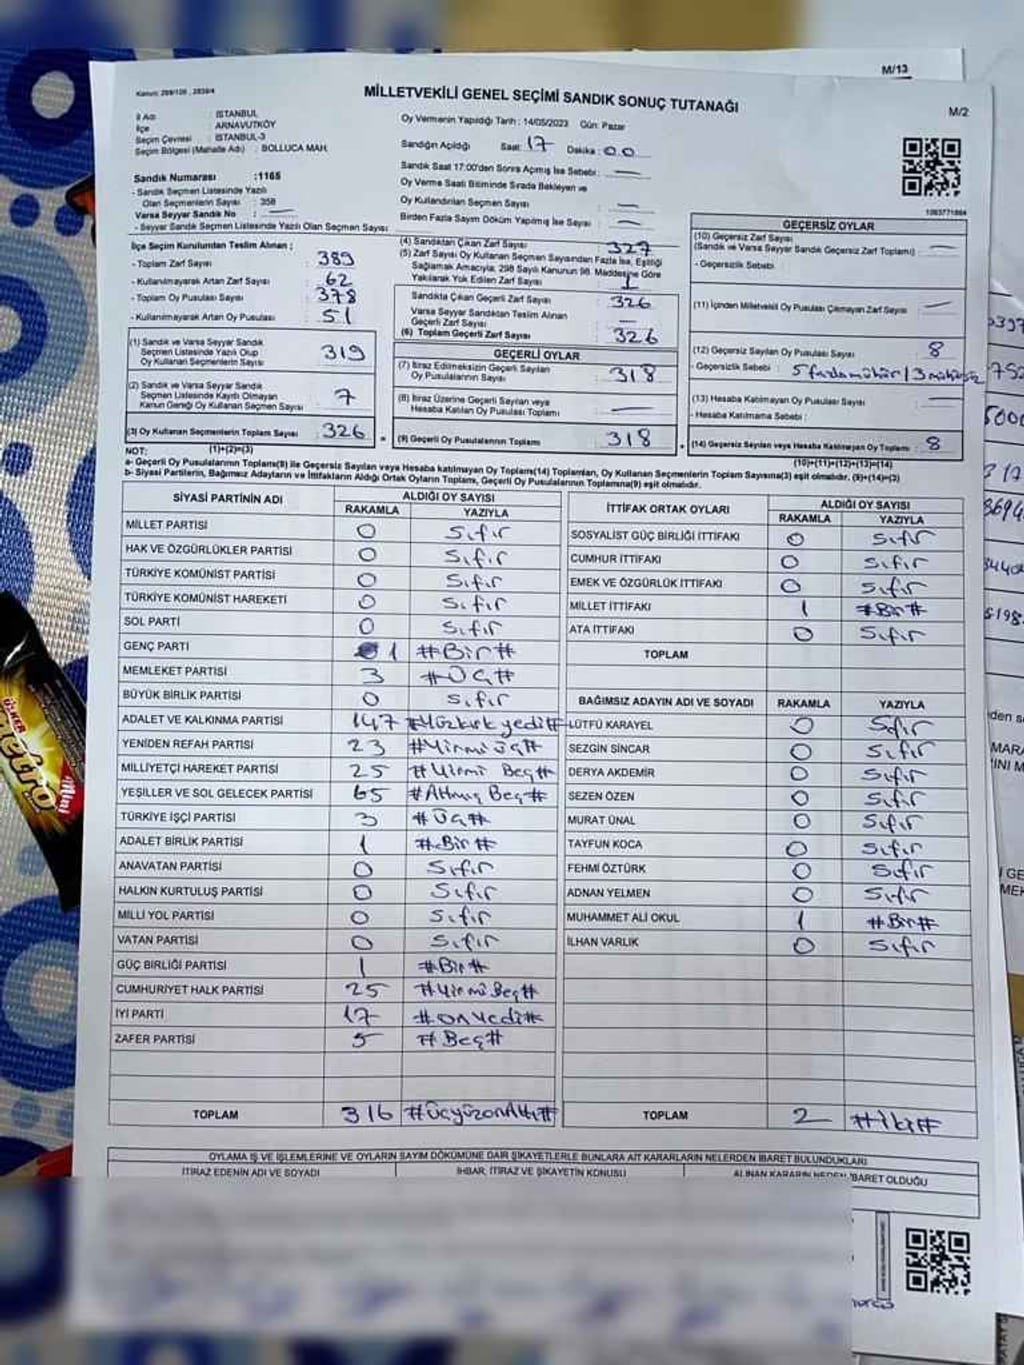 M/13
Kanun: 298/105 , 2839/4
MİLLETVEKİLİ GENEL SEÇİMİ SANDIK SONUÇ TUTANAĞI
M/2
İl Adı : İSTANBUL
İlçe : ARNAVUTKÖY
Seçim Çevresi : İSTANBUL-3
Seçim Bölgesi (Mahalle Adı) : BOLLUCA MAH.
Oy Vermenin Yapıldığı Tarih : 14/05/2023 Gün: Pazar
Sandığın Açıldığı Saat: 17 Dakika : 00
Sandık Saat 17:00'den Sonra Açılmış İse Sebebi : —
Oy Verme Saati Bitiminde Sırada Bekleyen ve
Oy Kullandırılan Seçmen Sayısı : —
Birden Fazla Sayım Döküm Yapılmış İse Sayısı : —
Sandık Numarası :1165
- Sandık Seçmen Listesinde Yazılı
Olan Seçmenlerin Sayısı : 358
Varsa Seyyar Sandık No : —
- Seyyar Sandık Seçmen Listesinde Yazılı Olan Seçmen Sayısı :
İlçe Seçim Kurulundan Teslim Alınan ;
- Toplam Zarf Sayısı 389
- Kullanılmayarak Artan Zarf Sayısı 62
- Toplam Oy Pusulası Sayısı 378
- Kullanılmayarak Artan Oy Pusulası 51
(1) Sandık ve Varsa Seyyar Sandık
Seçmen Listesinde Yazılı Olup
Oy Kullanan Seçmenlerin Sayısı 319
(2) Sandık ve Varsa Seyyar Sandık
Seçmen Listesinde Kayıtlı Olmayan
Kanun Gereği Oy Kullanan Seçmen Sayısı 7
(3) Oy Kullanan Seçmenlerin Toplam Sayısı 326
(1)+(2)=(3)
(4) Sandıktan Çıkan Zarf Sayısı 327
(5) Zarf Sayısı Oy Kullanan Seçmen Sayısından Fazla İse, Eşitliği
Sağlamak Amacıyla, 298 Sayılı Kanunun 98. Maddesine Göre
Yakılarak Yok Edilen Zarf Sayısı 1
Sandıkta Çıkan Geçerli Zarf Sayısı 326
Varsa Seyyar Sandıktan Teslim Alınan
Geçerli Zarf Sayısı —
(6) Toplam Geçerli Zarf Sayısı 326
GEÇERLİ OYLAR
(7) İtiraz Edilmeksizin Geçerli Sayılan
Oy Pusulalarının Sayısı 318
(8) İtiraz Üzerine Geçerli Sayılan veya
Hesaba Katılan Oy Pusulası Toplamı —
(9) Geçerli Oy Pusulalarının Toplamı 318
1083771884
GEÇERSİZ OYLAR
(10) Geçersiz Zarf Sayısı
(Sandık ve Varsa Seyyar Sandık Geçersiz Zarf Toplamı) —
- Geçersizlik Sebebi :
(11) İçinden Milletvekili Oy Pusulası Çıkmayan Zarf Sayısı —
(12) Geçersiz Sayılan Oy Pusulası Sayısı 8
- Geçersizlik Sebebi : 5 fazla mühür / 3 mühürsüz
(13) Hesaba Katılmayan Oy Pusulası Sayısı —
- Hesaba Katılmama Sebebi :
(14) Geçersiz Sayılan veya Hesaba Katılmayan Oy Toplamı 8
(10)+(11)+(12)+(13)=(14)
NOT:
a- Geçerli Oy Pusulalarının Toplamı(9) ile Geçersiz Sayılan veya Hesaba katılmayan Oy Toplamı(14) Toplamları, Oy Kullanan Seçmenlerin Toplam Sayısına(3) eşit olmalıdır. (9)+(14)=(3)
b- Siyasi Partilerin, Bağımsız Adayların ve İttifakların Aldığı Ortak Oyların Toplamı, Geçerli Oy Pusulalarının Toplamına(9) eşit olmalıdır.
SİYASİ PARTİNİN ADI ALDIĞI OY SAYISI
RAKAMLA YAZIYLA
MİLLET PARTİSİ 0 Sıfır
HAK VE ÖZGÜRLÜKLER PARTİSİ 0 Sıfır
TÜRKİYE KOMÜNİST PARTİSİ 0 Sıfır
TÜRKİYE KOMÜNİST HAREKETİ 0 Sıfır
SOL PARTİ 0 Sıfır
GENÇ PARTİ 1 #Bir#
MEMLEKET PARTİSİ 3 #Üç#
BÜYÜK BİRLİK PARTİSİ 0 Sıfır
ADALET VE KALKINMA PARTİSİ 147 #Yüzkırk yedi#
YENİDEN REFAH PARTİSİ 23 #Yirmi üç#
MİLLİYETÇİ HAREKET PARTİSİ 25 #Yirmi Beş#
YEŞİLLER VE SOL GELECEK PARTİSİ 65 #Altmış Beş#
TÜRKİYE İŞÇİ PARTİSİ 3 #Üç#
ADALET BİRLİK PARTİSİ 1 #Bir#
ANAVATAN PARTİSİ 0 Sıfır
HALKIN KURTULUŞ PARTİSİ 0 Sıfır
MİLLİ YOL PARTİSİ 0 Sıfır
VATAN PARTİSİ 0 Sıfır
GÜÇ BİRLİĞİ PARTİSİ 1 #Bir#
CUMHURİYET HALK PARTİSİ 25 #Yirmi Beş#
İYİ PARTİ 17 #onyedi#
ZAFER PARTİSİ 5 #Beş#
TOPLAM 316 #ÜçyüzonAltı#
İTTİFAK ORTAK OYLARI ALDIĞI OY SAYISI
RAKAMLA YAZIYLA
SOSYALİST GÜÇ BİRLİĞİ İTTİFAKI 0 Sıfır
CUMHUR İTTİFAKI 0 Sıfır
EMEK VE ÖZGÜRLÜK İTTİFAKI 0 Sıfır
MİLLET İTTİFAKI 1 #Bir#
ATA İTTİFAKI 0 Sıfır
TOPLAM
BAĞIMSIZ ADAYIN ADI VE SOYADI RAKAMLA YAZIYLA
LÜTFÜ KARAYEL 0 Sıfır
SEZGİN SİNCAR 0 Sıfır
DERYA AKDEMİR 0 Sıfır
SEZEN ÖZEN 0 Sıfır
MURAT ÜNAL 0 Sıfır
TAYFUN KOCA 0 Sıfır
FEHMİ ÖZTÜRK 0 Sıfır
ADNAN YELMEN 0 Sıfır
MUHAMMET ALİ OKUL 1 #Bir#
İLHAN VARLIK 0 Sıfır
TOPLAM 2 #İki#
OYLAMA İŞ VE İŞLEMLERİNE VE OYLARIN SAYIM DÖKÜMÜNE DAİR ŞİKAYETLERLE BUNLARA AİT KARARLARIN NELERDEN İBARET BULUNDUKLARI
İTİRAZ EDENİN ADI VE SOYADI İHBAR, İTİRAZ VE ŞİKAYETİN KONUSU ALINAN KARARIN NEDEN İBARET OLDUĞU
ÜLKER
metro
Mini